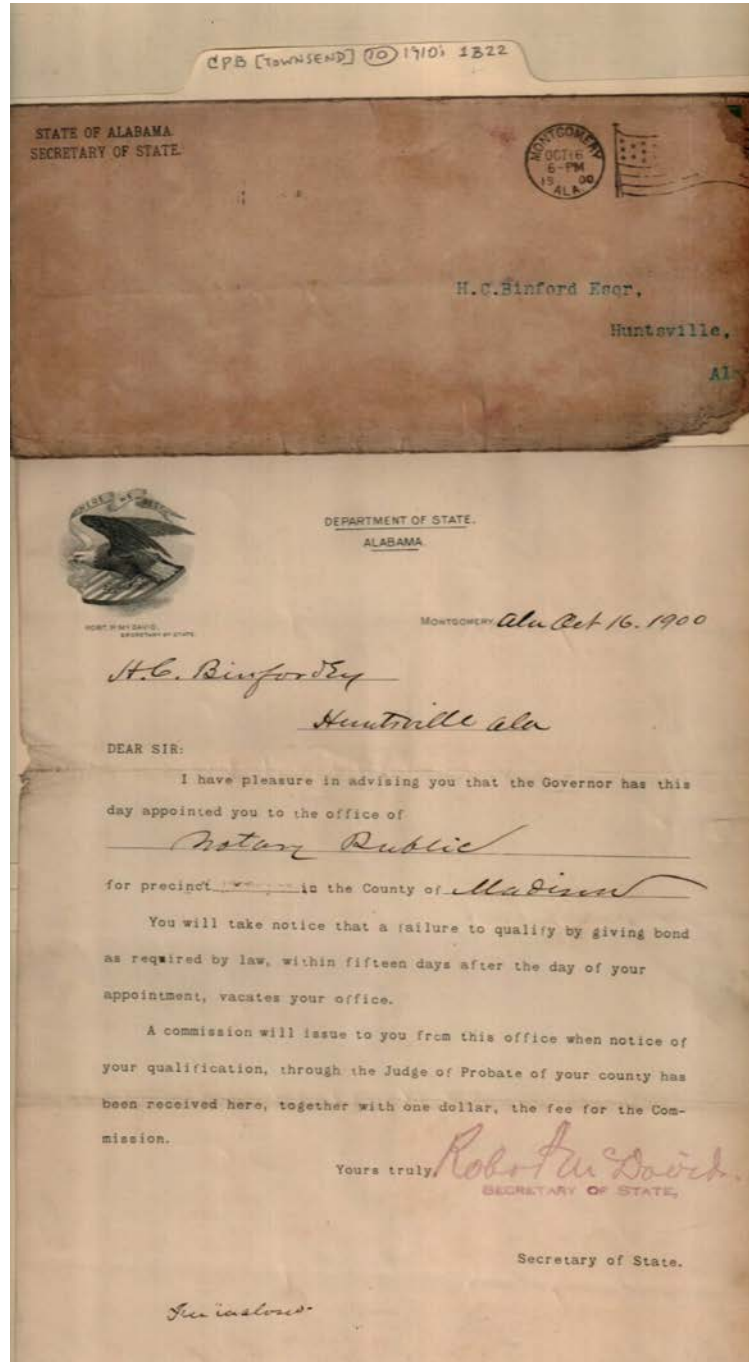 CPB [TOWNSEND] 10 1910; 1822
STATE OF ALABAMA
SECRETARY OF STATE.
MONTGOMERY
OCT 16
6-PM
1900
ALA.
H.C.Binford Esqr,
Huntsville,
HERE WE REST
DEPARTMENT OF STATE.
ALABAMA.
SECRETARY OF STATE.
MONTGOMERY, Ala Oct 16. 1900
H.C. Binford
Huntsville Ala
DEAR SIR:
I have pleasure in advising you that the Governor has this
day appointed you to the office of
Notary Public
for precinct in the County of Madison
You will take notice that a failure to qualify by giving bond
as required by law, within fifteen days after the day of your
appointment, vacates your office.
A commission will issue to you from this office when notice of
your qualification, through the Judge of Probate of your county has
been received here, together with one dollar, the fee for the Com-
mission.
Yours truly, Robt P McDavid.
SECRETARY OF STATE,
Secretary of State.